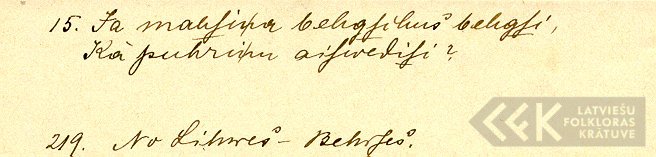 15. Ja mahsiņa behgsihus behgsi,
Kā puhriņu aiswedisi?
219. No Lihwes-Behrses.
LATVIEŠU
FOLKLORAS
KRĀTUVE